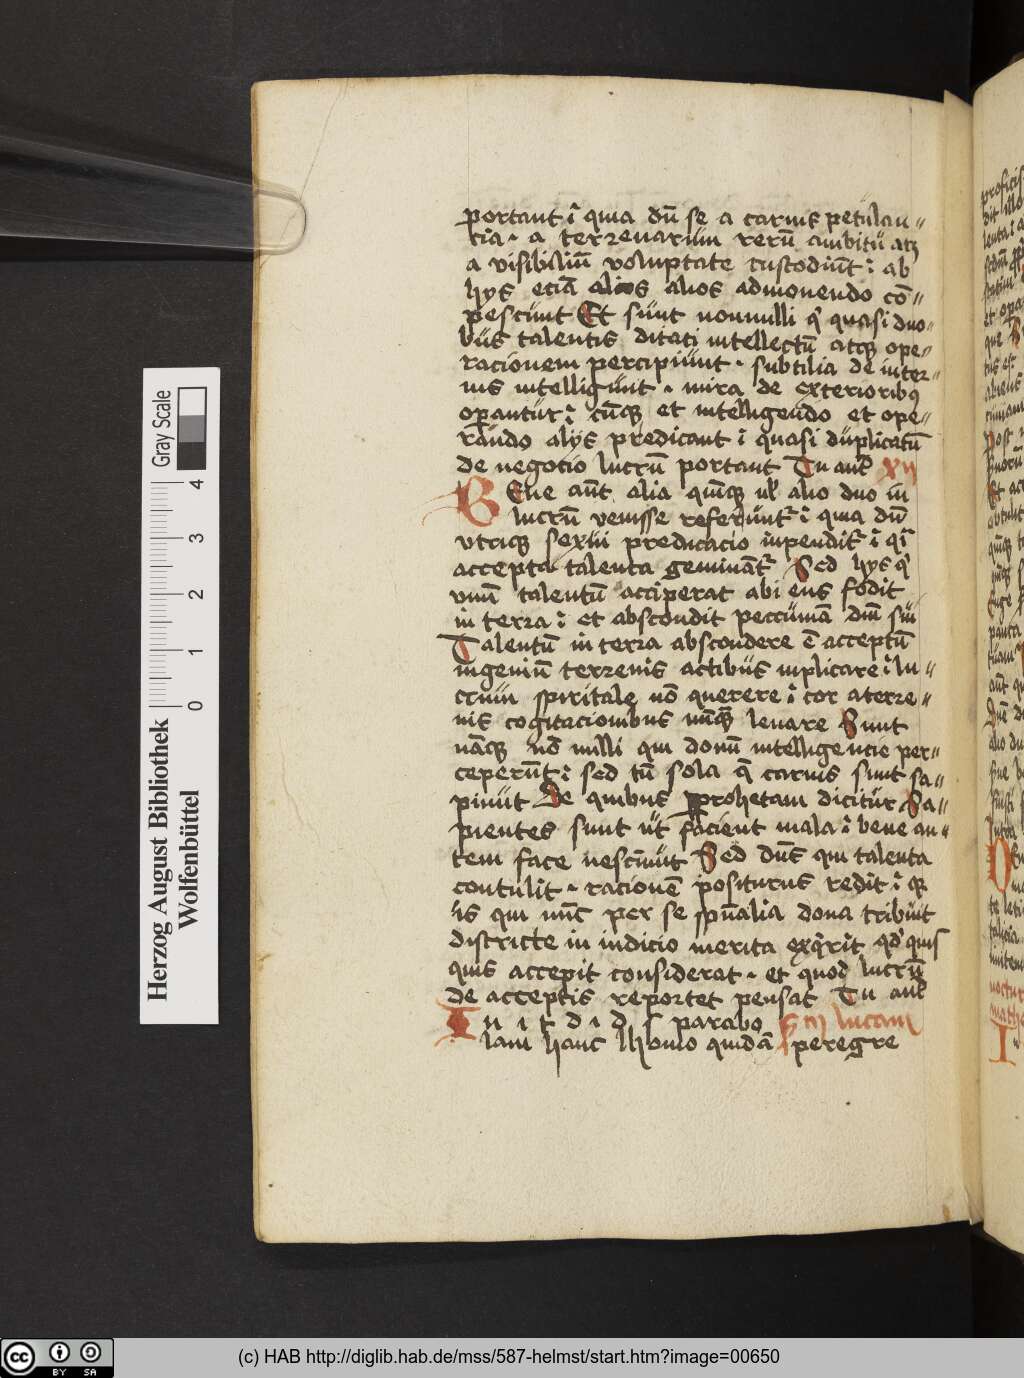 portant ⁊ quia dū se a carnis petulan〃
tia · a terrenarūm rerū ambitū atꝫ
a visibiliū voluptate custodiūt ⁊ ab
hys eciā alios alios admonendo cō〃
pescūnt Et sūnt nonnulli qͥ quasi duo〃
būs talentis ditati intellectū atqꝫ ope〃
racionem percipiūnt · subtilia de inter〃
nis intelligūnt · mira de exterioribꝰ
oꝑantūr ⁊ cūqꝫ et intelligendo et ope〃
rando alys predicant ⁊ quasi dūplicatū
de negocio lucrū portant Tu aūt xii
BEne aūt alia quīqꝫ ul alio duo in
lucrū venisse referūntͬ ⁊ quia dū
vtriqꝫ sexui predicacio inpenditͬ ⁊ qͣi
accepta talenta geminātͬ Sed hys qͥ
vnū talentū acciperat abiens fodit
in terra ⁊ et abscondit peccūniā dn̄i sūi
Talentū in terra abscondere ē acceptū
ingeniū terrenis actibūs inplicare ⁊ lu〃
crum spiritale nō querere ⁊ cor a terre〃
nis cogitacionibus nūqꝫ levare Sunt
nāqꝫ nō nulli qui donū intelligencie per〃
ceperūnt ⁊ sed tū sola q̄ carnis sūnt sa〃
piūnt De quibus ꝑ prophetam dicitūr Sa〃
pientes sunt ūt faciant mala ⁊ bene au〃
tem face nesciūnt Sed dn̄s qui talenta
contulit · racionē positurus redit ⁊ qꝫ
īs qui nūc per se spūalia dona tribuit
districte in iudicio merita exqͥrit qͥd quis
quis accepit considerat · et quod lucrū
de acceptis reportet pensat Tu aūt
In i t d i d s parabo Scd̄m lucam
lam hanc Homo quidā peregre
Herzog August Bibliothek
Wolfenbüttel
Gray Scale
0 1 2 3 4
cc BY SA
(c) HAB http://diglib.hab.de/mss/587-helmst/start.htm?image=00650